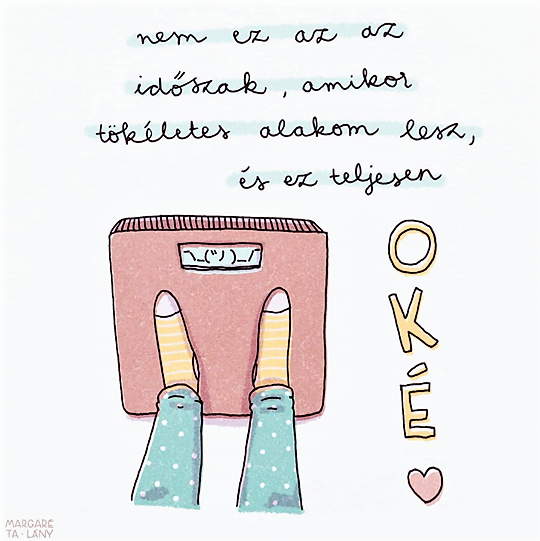 nem ez az az
időszak, amikor
tökéletes alakom lesz,
és ez teljesen
OKÉ
¯\_(ツ)_/¯
MARGARÉ
TA · LÁNY